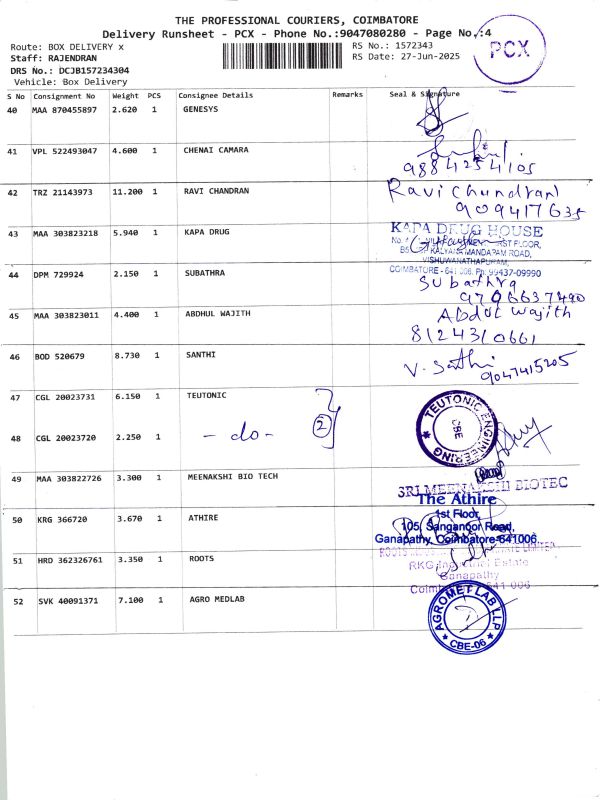 THE PROFESSIONAL COURIERS, COIMBATORE
Delivery Runsheet - PCX - Phone No.:9047080280 - Page No.:4
Route: BOX DELIVERY x
RS No.: 1572343
Staff: RAJENDRAN
RS Date: 27-Jun-2025
DRS No.: DCJB157234304
Vehicle: Box Delivery
PCX
S No Consignment No Weight PCS Consignee Details Remarks Seal & Signature
40 MAA 870455897 2.620 1 GENESYS
41 VPL 522493047 4.600 1 CHENAI CAMARA
9884254105
42 TRZ 21143973 11.200 1 RAVI CHANDRAN Ravi Chandran
909417635
43 MAA 303823218 5.940 1 KAPA DRUG KAPA DRUG HOUSE
FIRST FLOOR,
KALYANA MANDAPAM ROAD,
VISHUWANATHAPURAM,
COIMBATORE - 641 006. Ph: 99437-09990
44 DPM 729924 2.150 1 SUBATHRA Subathra
9706637490
45 MAA 303823011 4.400 1 ABDHUL WAJITH Abdul wajith
8124310661
46 BOD 520679 8.730 1 SANTHI V. Santhi
9047415205
47 CGL 20023731 6.150 1 TEUTONIC
TEUTONIC ENGINEERING
CBE
48 CGL 20023720 2.250 1 - do - 2
49 MAA 303822726 3.300 1 MEENAKSHI BIO TECH SRI MEENAKSHI BIOTEC
50 KRG 366720 3.670 1 ATHIRE The Athire
1st Floor,
105, Sanganoor Road,
Ganapathy, Coimbatore-641006.
51 HRD 362326761 3.350 1 ROOTS ROOTS PRIVATE LIMITED
RKG Industrial Estate
Ganapathy
Coimbatore-641 006
52 SVK 40091371 7.100 1 AGRO MEDLAB
AGROMET LAB LLP
CBE-06